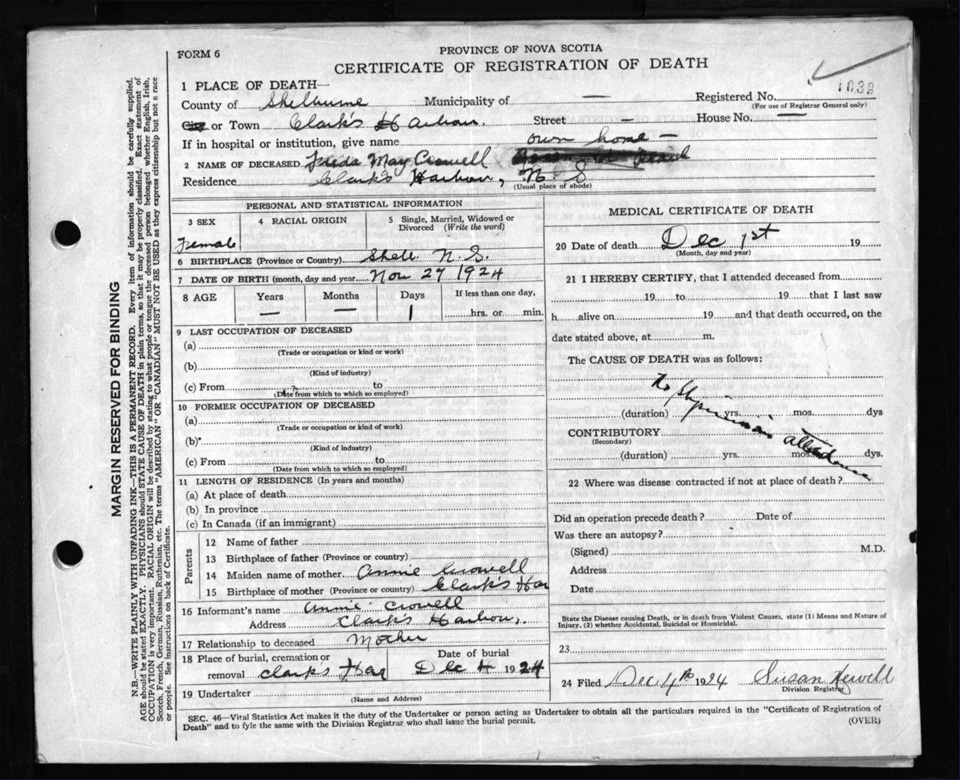 FORM 6
PROVINCE OF NOVA SCOTIA
CERTIFICATE OF REGISTRATION OF DEATH
1 PLACE OF DEATH—
Registered No. 1039
(For use of Registrar General only)
County of Shelburne Municipality of —
City or Town Clark's Harbour. Street — House No. —
If in hospital or institution, give name own home —
2 NAME OF DECEASED Freda May Crowell
Residence Clark's Harbour, N. S.
(Usual place of abode)
PERSONAL AND STATISTICAL INFORMATION
3 SEX 4 RACIAL ORIGIN 5 Single, Married, Widowed or Divorced (Write the word)
Female
6 BIRTHPLACE (Province or Country) Shelb N. S.
7 DATE OF BIRTH (month, day and year) Nov 27 1924
8 AGE Years Months Days If less than one day,
— — 1 hrs. or min.
9 LAST OCCUPATION OF DECEASED
(a)
(Trade or occupation or kind or work)
(b)
(Kind of industry)
(c) From to
(Date from which to which so employed)
10 FORMER OCCUPATION OF DECEASED
(a)
(Trade or occupation or kind of work)
(b)
(Kind of industry)
(c) From to
(Date from which to which so employed)
11 LENGTH OF RESIDENCE (In years and months)
(a) At place of death
(b) In province
(c) In Canada (if an immigrant)
Parents
12 Name of father
13 Birthplace of father (Province or country)
14 Maiden name of mother Annie Crowell
15 Birthplace of mother (Province or country) Clark's Har
16 Informant's name Annie Crowell
Address Clark's Harbour,
17 Relationship to deceased Mother
18 Place of burial, cremation or removal Clarks Har Date of burial Dec 4 1924
19 Undertaker
(Name and Address)
MEDICAL CERTIFICATE OF DEATH
20 Date of death Dec 1st 19
(Month, day and year)
21 I HEREBY CERTIFY, that I attended deceased from
19 to 19 that I last saw
h alive on 19 and that death occurred, on the
date stated above, at m.
The CAUSE OF DEATH was as follows:
(duration) yrs. mos. dys
CONTRIBUTORY
(Secondary)
(duration) yrs. mos. dys.
22 Where was disease contracted if not at place of death?
Did an operation precede death? Date of
Was there an autopsy?
(Signed) M.D.
Address
Date
State the Disease causing Death, or in Death from Violent Causes, state (1) Means and Nature of
Injury, (2) whether Accidental, Suicidal or Homicidal.
23
24 Filed Dec 4th 1924 Susan
Division Registrar
SEC. 46—Vital Statistics Act makes it the duty of the Undertaker or person acting as Undertaker to obtain all the particulars required in the "Certificate of Registration of
Death" and to fyle the same with the Division Registrar who shall issue the burial permit.
(OVER)
MARGIN RESERVED FOR BINDING
N.B.—WRITE PLAINLY WITH UNFADING INK—THIS IS A PERMANENT RECORD. Every item of information should be carefully supplied.
AGE should be stated EXACTLY. PHYSICIANS should STATE CAUSE OF DEATH in plain terms, so that it may be properly classified. Exact statement of
OCCUPATION is very important. RACIAL ORIGIN will be described by stating to what people or tongue the deceased person belonged whether English, Irish,
Scotch, French, German, Russian, Ruthenian, etc. The terms "AMERICAN" OR "CANADIAN" MUST NOT BE USED as they express citizenship but not a race
or people. See instructions on back of Certificate.